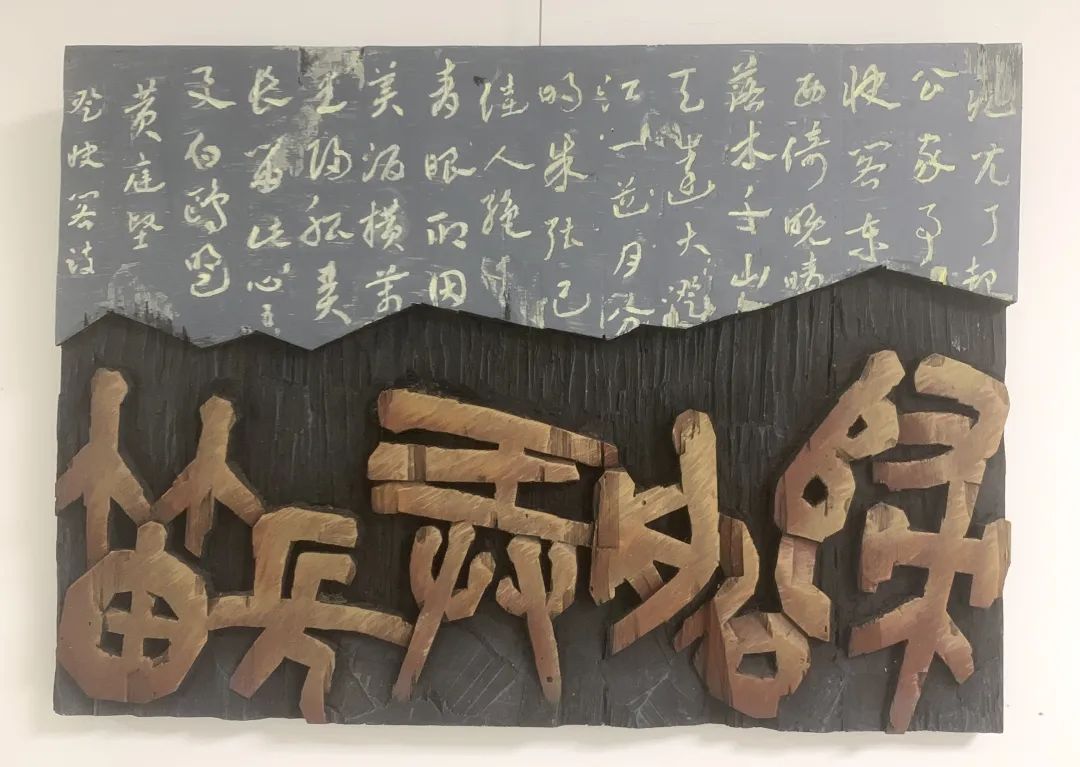 痴儿了却
公家事
快阁东
西倚晚晴
落木千山
天远大澄
江一道月分
明朱弦已
佳人绝
青眼聊因
美酒横万
里归船弄
长笛此心吾
与白鸥盟
黄庭坚
登快阁诗
歸船弄長笛